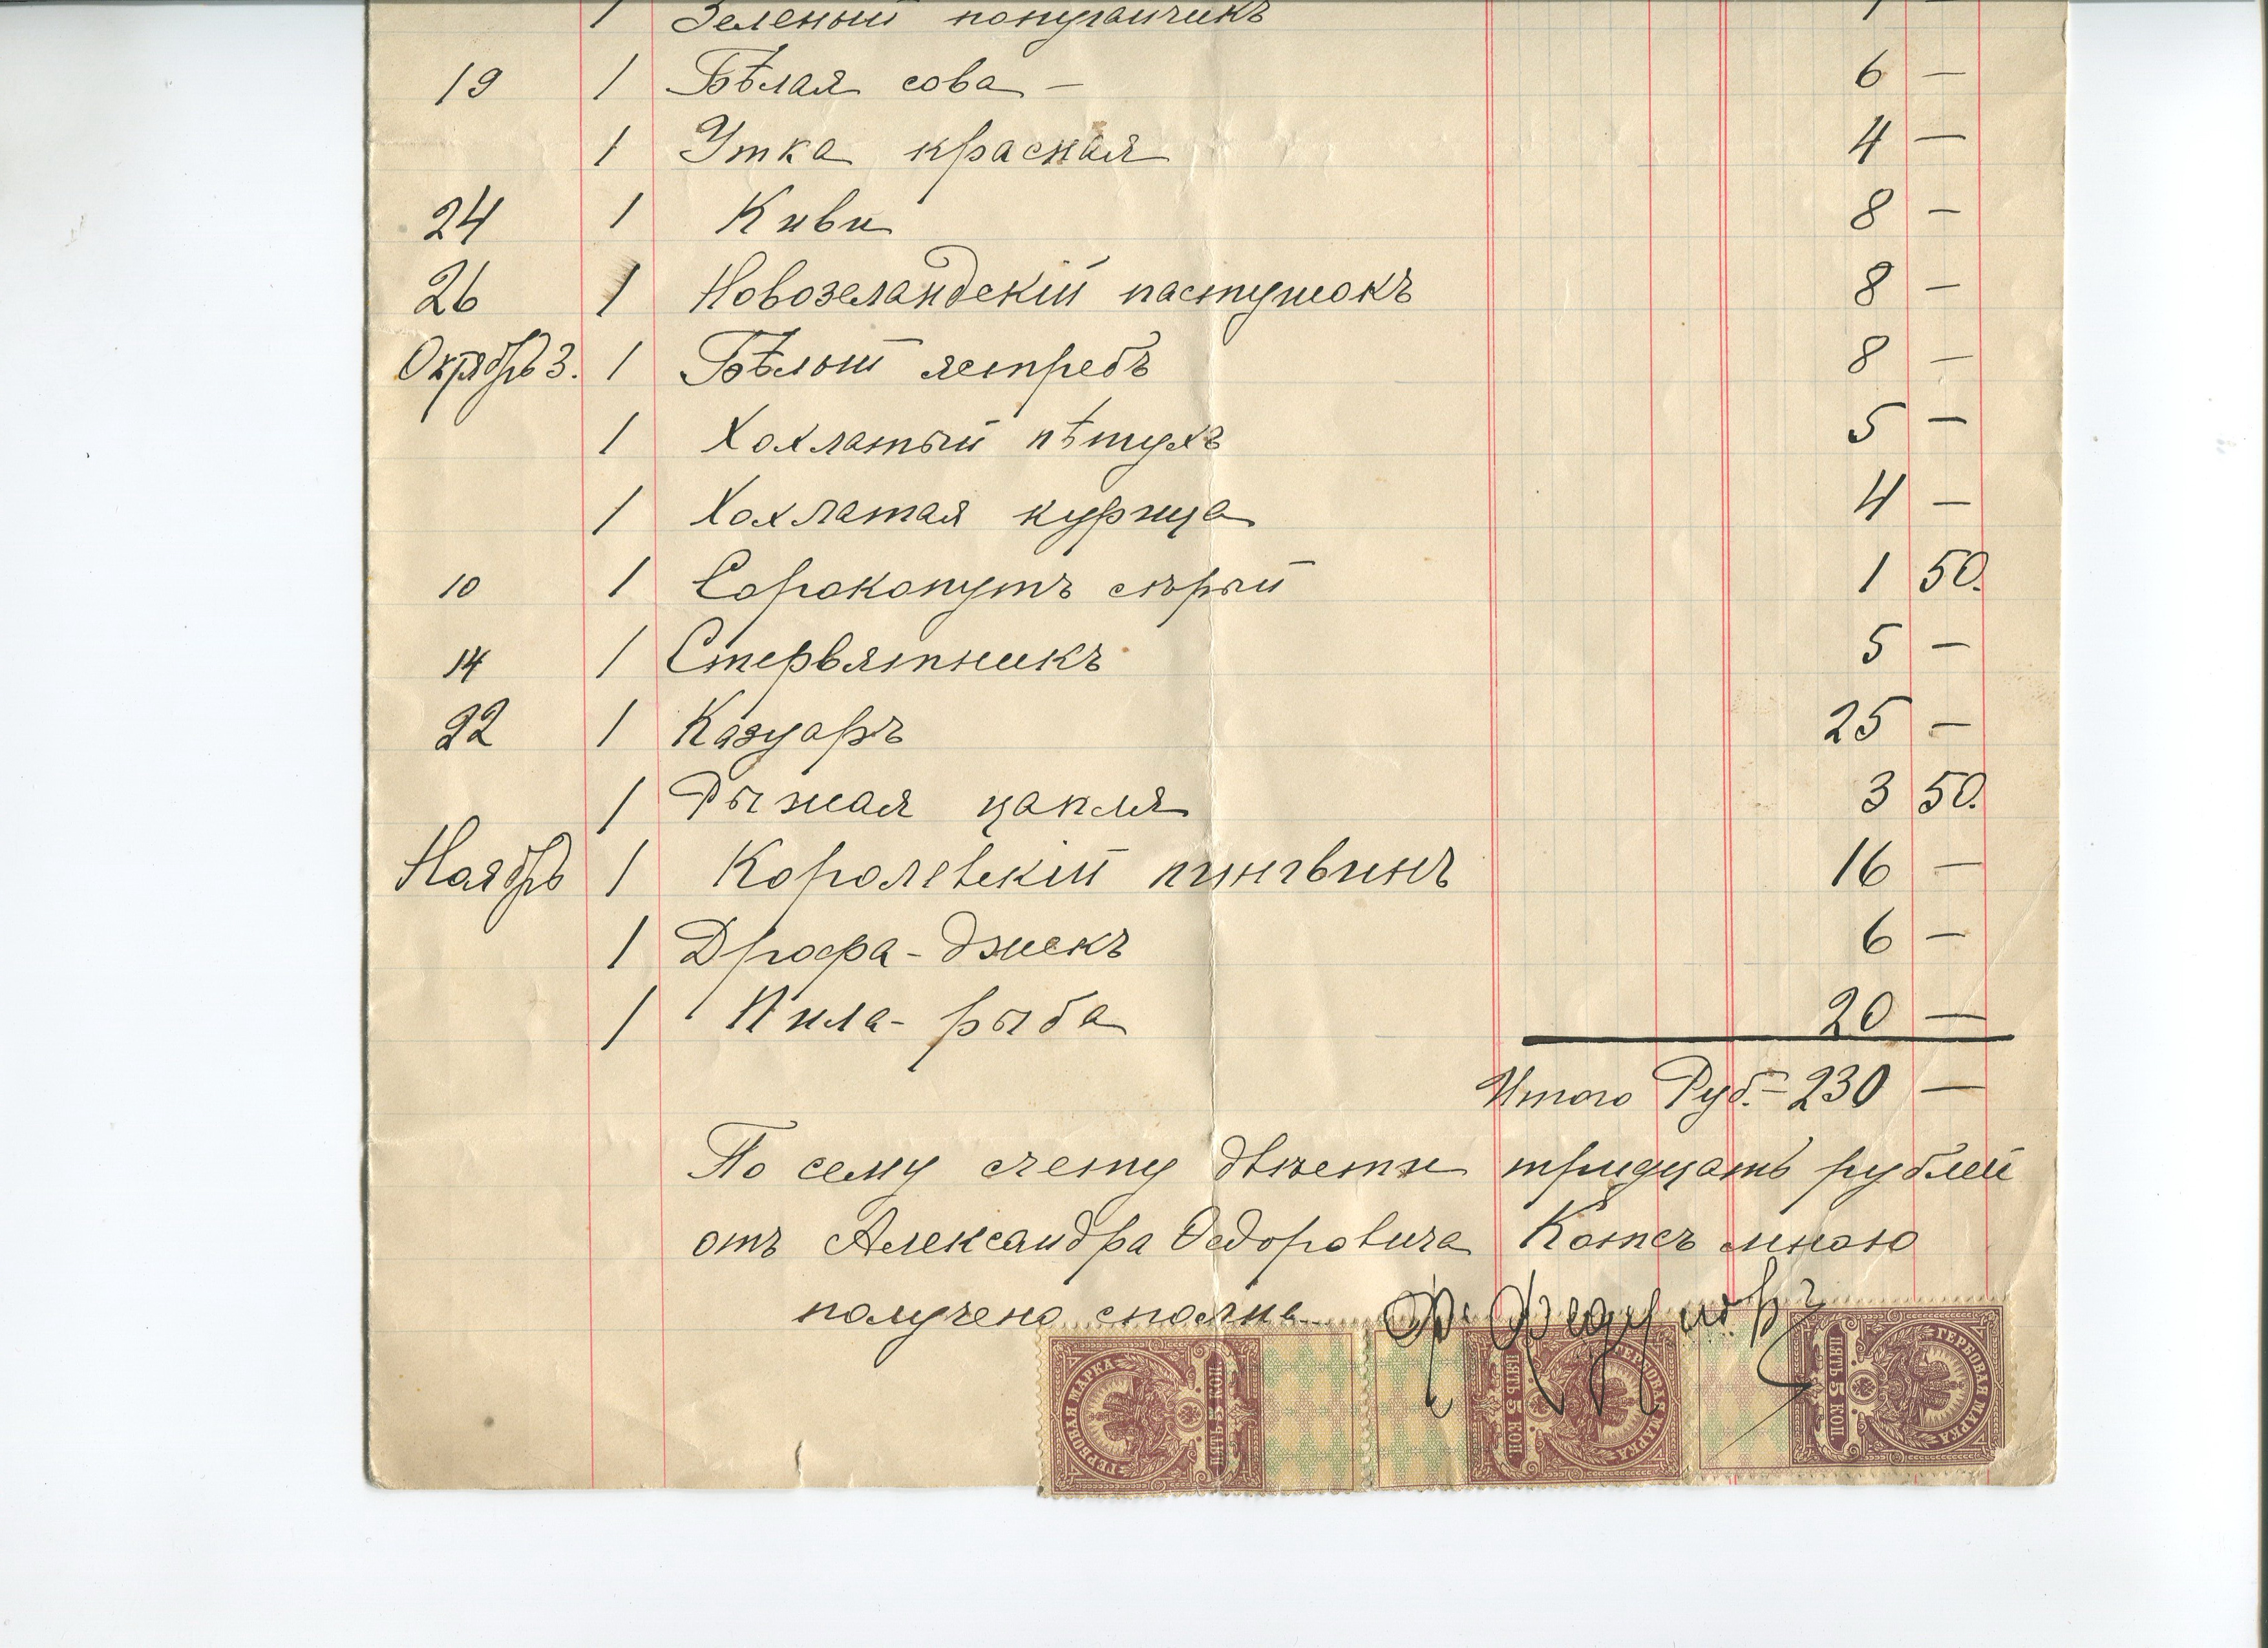 1 Зеленый попугайчикъ 1 —
19 1 Бѣлая сова — 6 —
1 Утка красная 4 —
24 1 Киви 8 —
26 1 Новозеландскій пастушокъ 8 —
Октябрь 3. 1 Бѣлый ястребъ 8 —
1 Хохлатый пѣтухъ 5 —
1 Хохлатая курица 4 —
10 1 Сорокопутъ сѣрый 1 50.
14 1 Стервятникъ 5 —
22 1 Казуаръ 25 —
1 Рыжая цапля 3 50.
Ноябрь 1 Королевскій пингвинъ 16 —
1 Дрофа-джекъ 6 —
1 Пила-рыба 20 —
Итого Руб. — 230 —
По сему счету двѣсти тридцать рублей
отъ Александра Федоровича Котсъ мною
получено сполна Ф. Федуловъ
ГЕРБОВАЯ МАРКА ПЯТЬ 5 КОП
ГЕРБОВАЯ МАРКА ПЯТЬ 5 КОП
ГЕРБОВАЯ МАРКА ПЯТЬ 5 КОП